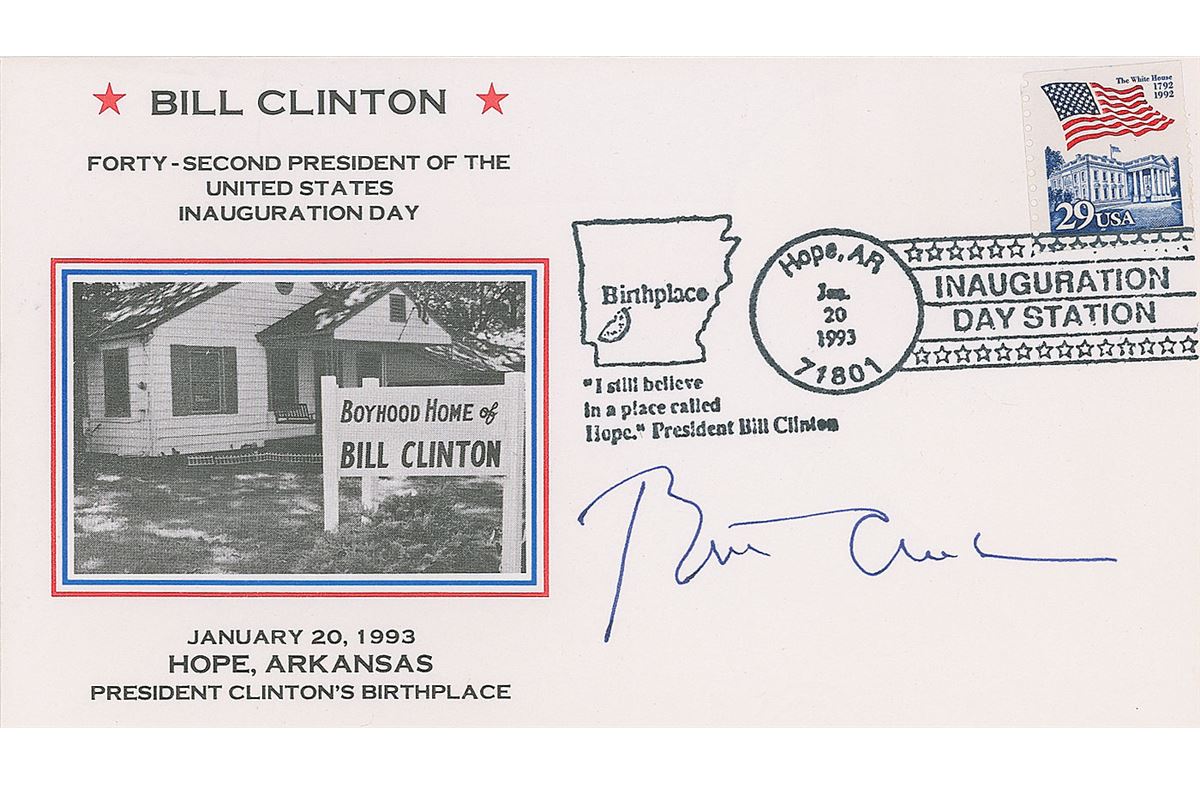 BILL CLINTON
FORTY-SECOND PRESIDENT OF THE
UNITED STATES
INAUGURATION DAY
BOYHOOD HOME of
BILL CLINTON
JANUARY 20, 1993
HOPE, ARKANSAS
PRESIDENT CLINTON'S BIRTHPLACE
The White House
1792
1992
29 USA
Birthplace
"I still believe
in a place called
Hope." President Bill Clinton
Hope, AR
Jan.
20
1993
71801
INAUGURATION
DAY STATION
Bill Clinton